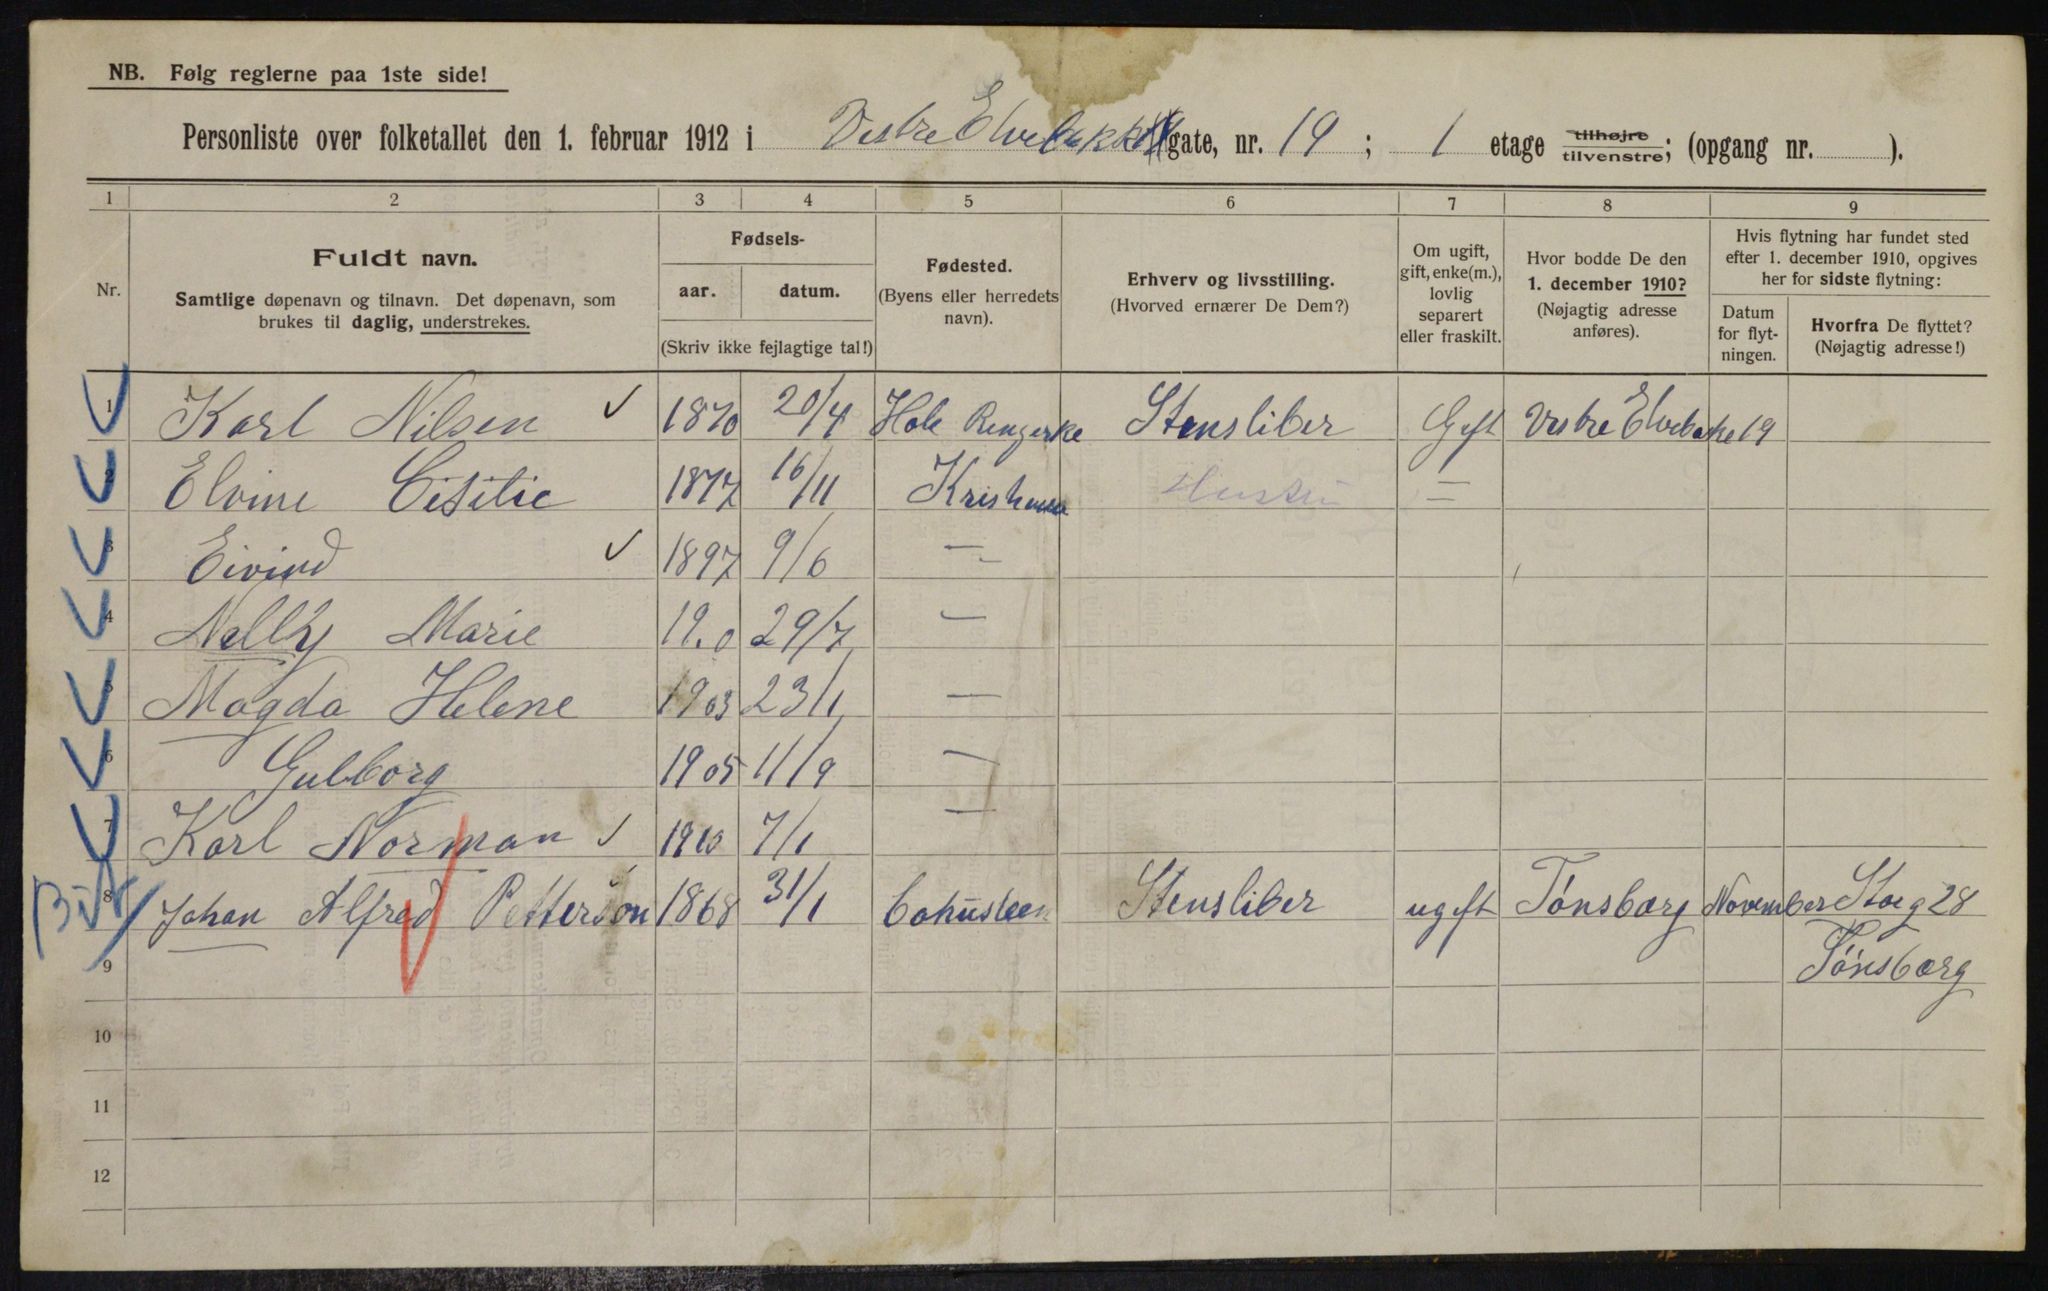 NB. Følg reglerne paa 1ste side!
Personliste over folketallet den 1. februar 1912 i Vestre Elvebakke gate, nr. 19 ; 1 etage tilhøjre/tilvenstre; (opgang nr. ).
1 2 3 4 5 6 7 8 9
Nr.
Fuldt navn.
Samtlige døpenavn og tilnavn. Det døpenavn, som
brukes til daglig, understrekes.
Fødsels-
aar. datum.
(Skriv ikke fejlagtige tal!)
Fødested.
(Byens eller herredets
navn).
Erhverv og livsstilling.
(Hvorved ernærer De Dem?)
Om ugift,
gift, enke(m.),
lovlig
separert
eller fraskilt.
Hvor bodde De den
1. december 1910?
(Nøjagtig adresse
anføres).
Hvis flytning har fundet sted
efter 1. december 1910, opgives
her for sidste flytning:
Datum
for flyt-
ningen.
Hvorfra De flyttet?
(Nøjagtig adresse!)
1 Karl Nilsen 1870 20/4 Hole Rengerke Stensliber Geft Vestre Elvebakke 19
2 Elvine Cisilie 1877 16/11 Hustru =
3 Eivind 1897 9/6 —
4 Nelly Marie 19.0 29/7 —
5 Magda Helene 1903 23/1 —
6 Gulborg 1905 11/9 —
7 Karl Norman 1910 7/1 —
8 Johan Alfred Petterson 1868 31/1 Stensliber ugeft Tønsbærg November Storg 28
9 Tønsbærg
10
11
12